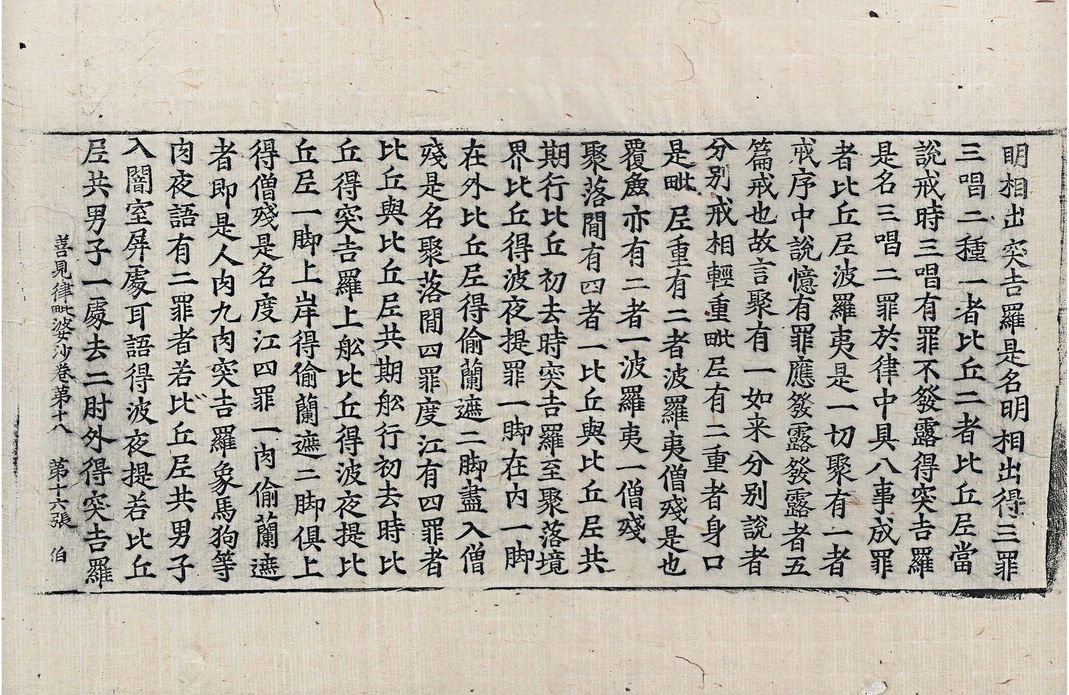 明相出突吉羅是名明相出得三罪
三唱二種一者比丘二者比丘尼當
說戒時三唱有罪不發露得突吉羅
是名三唱二罪於律中具八事成罪
者比丘尼波羅夷是一切聚有一者
戒序中說憶有罪應發露發露者五
篇戒也故言聚有一如来分別說者
分別戒相輕重毗尼有二重者身口
是毗尼重有二者波羅夷僧殘是也
覆麁亦有二者一波羅夷一僧殘
聚落間有四者一比丘與比丘尼共
期行比丘初去時突吉羅至聚落境
界比丘得波夜提罪一脚在內一脚
在外比丘尼得偷蘭遮二脚盡入僧
殘是名聚落間四罪度江有四罪者
比丘與比丘尼共期舩行初去時比
丘得突吉羅上舩比丘得波夜提比
丘尼一脚上岸得偷蘭遮二脚俱上
得僧殘是名度江四罪一肉偷蘭遮
者即是人肉九肉突吉羅象馬狗等
肉夜語有二罪者若比丘尼共男子
入闇室屏處耳語得波夜提若比丘
尼共男子一處去二肘外得突吉羅
善見律毗婆沙卷第十八 第十六張 伯